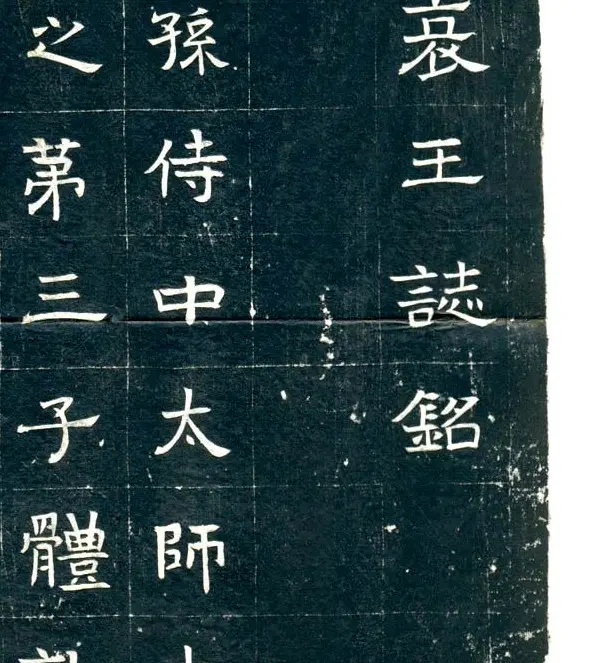 哀王誌銘
孫侍中太師
之苐三子體